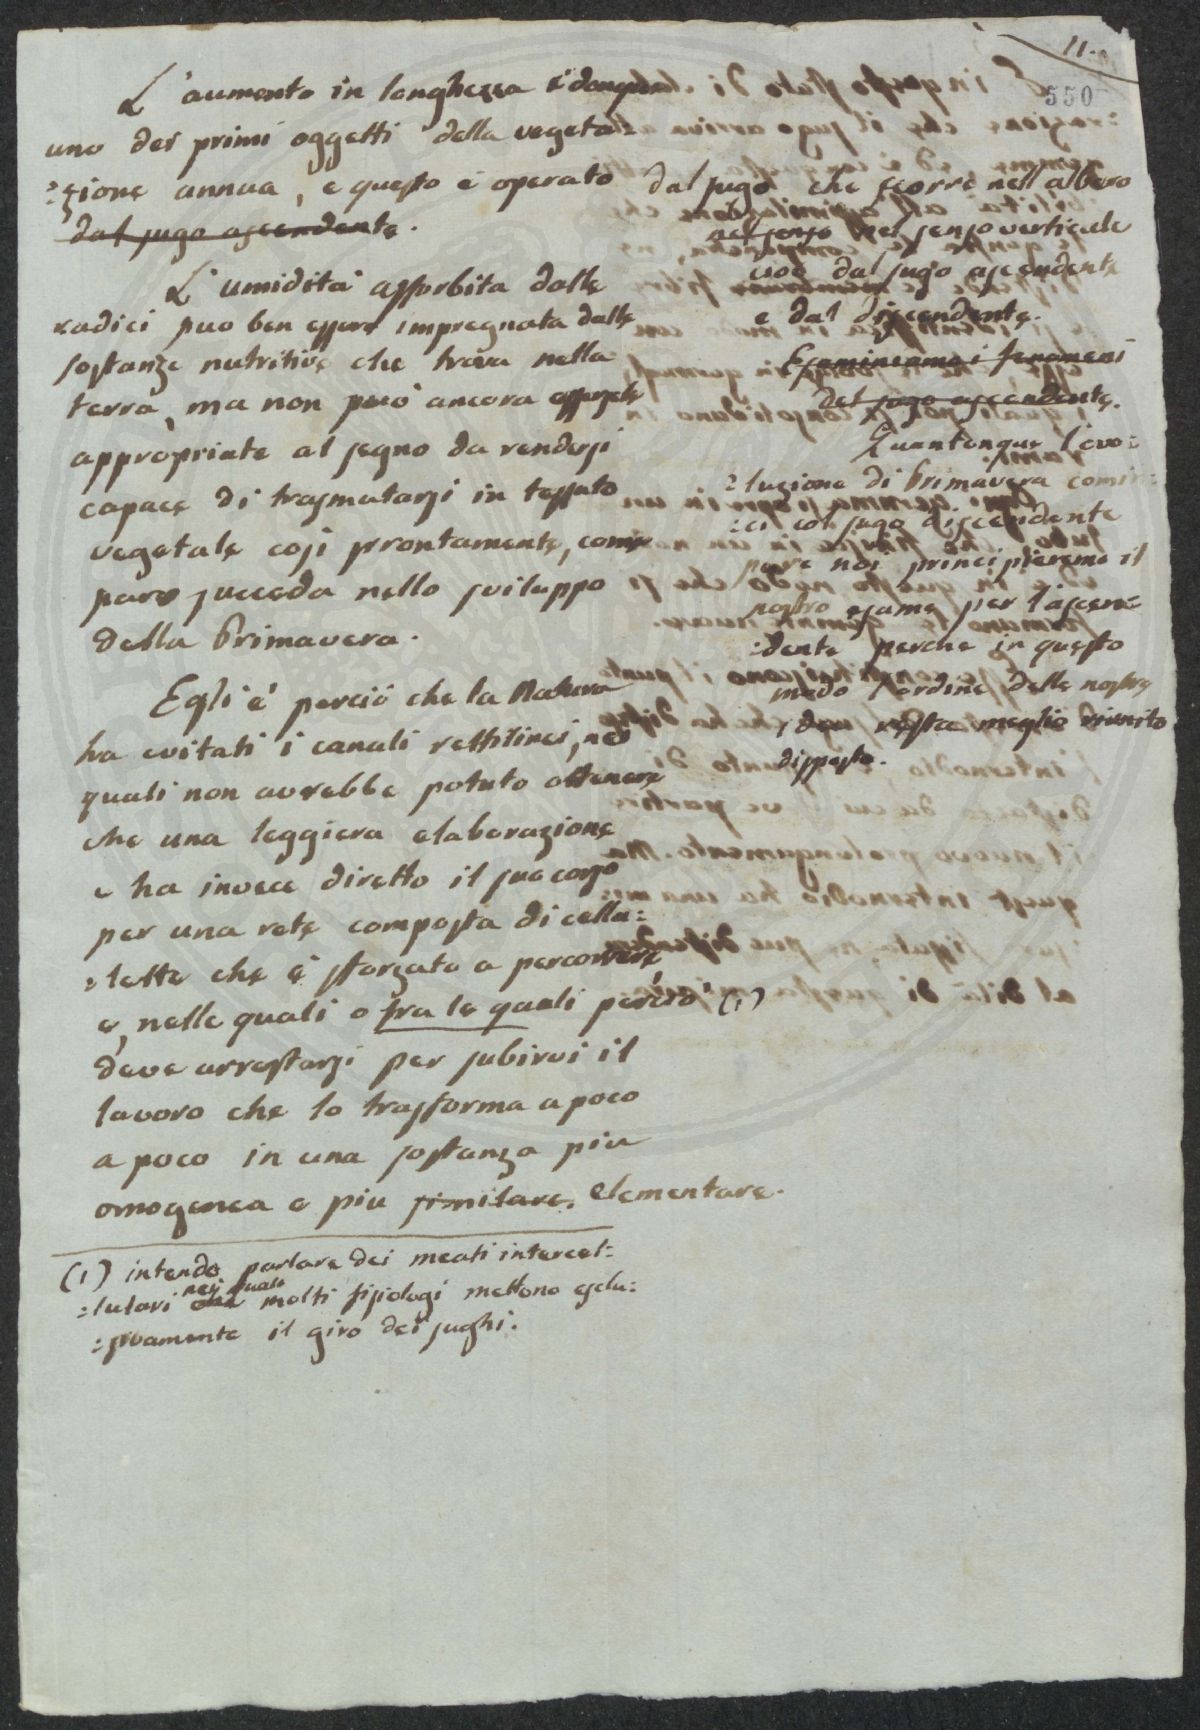 11.
550
L'aumento in longhezza è dunque
uno dei primi oggetti della vegeta=
:zione annua, e questo è operato
dal sugo ascendente.
dal sugo che scorre nell albero
nel senso nel senso verticale
cioè dal sugo ascendente
e dal discendente.
Esamineremo i fenomeni
del sugo ascendente.
Quantonque l'evo:
:luzione di Primavera comin:
:ci col sugo discendente
pure noi principieremo il
nostro esame per l'ascen:
:dente perche in questo
modo l'ordine delle nostre
idee resta meglio riunito
disposto.
L'umidità assorbita dalle
radici puo ben essere impregnata delle
sostanze nutritive che trova nella
terra, ma non può ancora
appropriate al segno da rendersi
capace di trasmutarsi in tessuto
vegetale così prontamente, come
pare succeda nello sviluppo
della Primavera.
Egli è perciò che la Natura
ha evitati i canali rettilinei, nei
quali non avrebbe potuto ottenere
che una leggiera elaborazione
e ha invece diretto il suo corso
per una rete composta di cellu:
:lette che è sforzato a percorrere
e, nelle quali o fra le quali perciò (1)
deve arrestarsi per subirvi il
lavoro che lo trasforma a poco
a poco in una sostanza piu
omogenea e piu similare. elementare.
(1) intendo parlare dei meati intercel:
:lulari che nei quali molti fisiologi mettono esclu:
:sivamente il giro dei sughi.